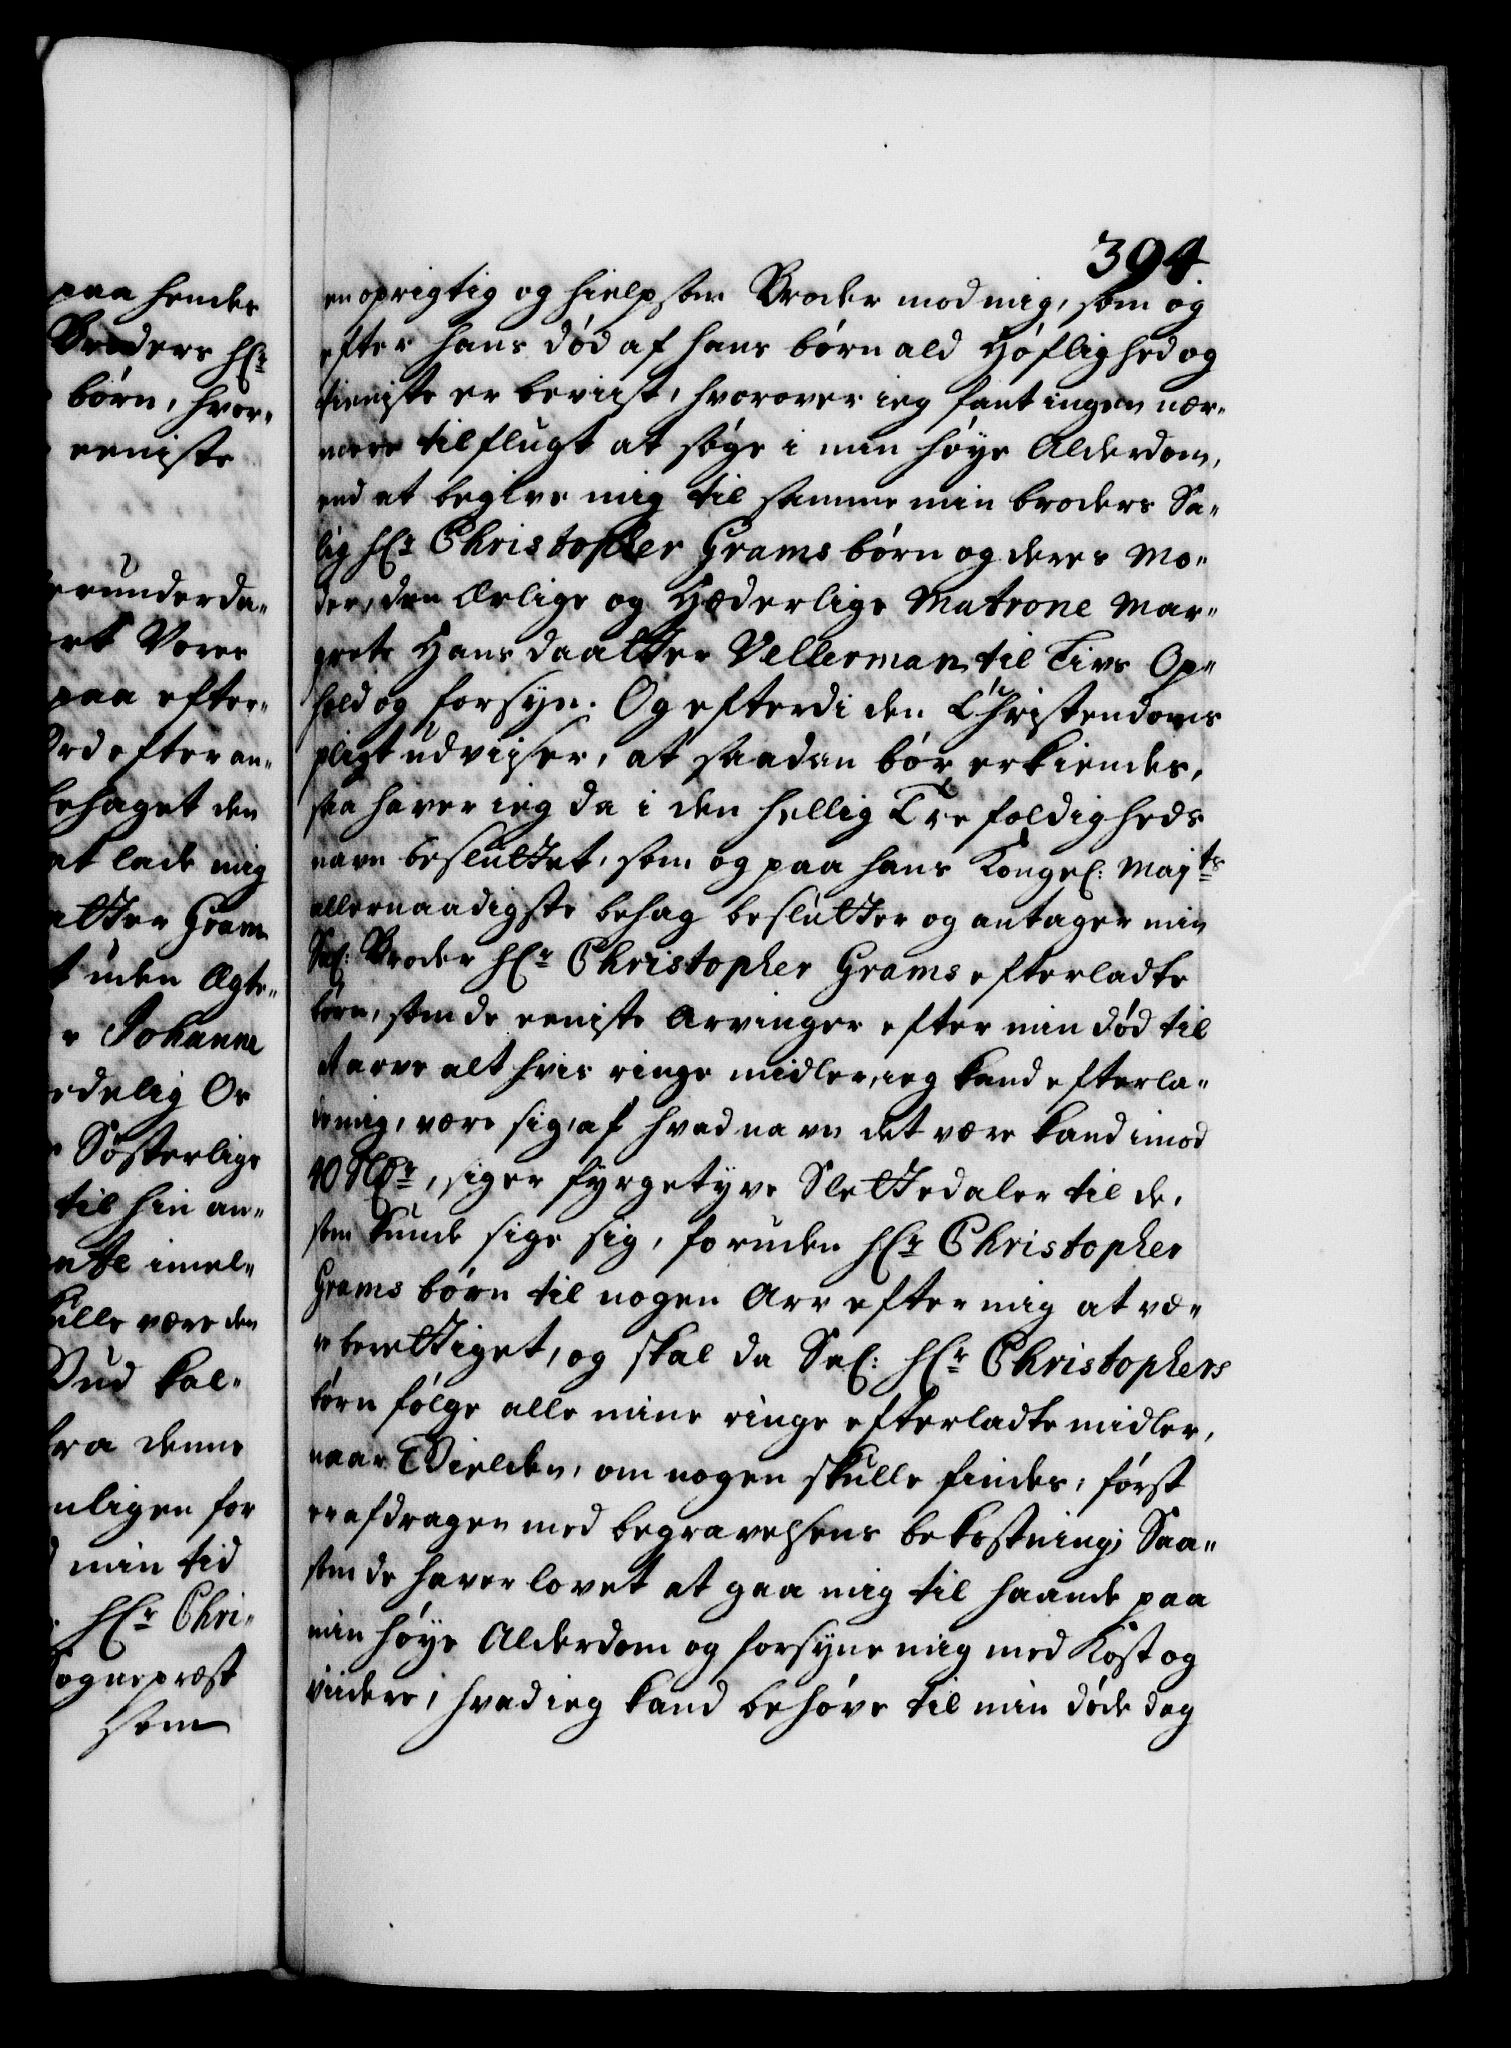 paa hendes
Broders hr
börn, hvor-
eeniste
erunderda-
ort Vores
paa efter-
Ord efter an-
behaget den
at lade mig
atter Gram
t uden Ægte-
r Johanne
edelig Or
Sösterlige
til hin an-
ente imel-
skulle være den
Bud kal-
fra denne
nligen for
min tid
hr Chri-
Sognepræst
som
394
en oprigtig og hielpsom Broder mod mig, som og
efter hans död af hans börn ald Höflighed og
tieniste er beviist, hvorover ieg fant ingen nær-
mere tilflugt at söge i min höye Alderdom,
end at begive mig til samme min broders Sa-
lig hr Christopher Grams börn og deres Mo-
der, den Ærlige og Hæderlige Matrone Mar-
grete Hansdaatter Vellerman, til Livs Op-
hold og forsyn. Og efterdi den Christendoms
pligt udviiser, at saadan bör erkiendes,
saa haver ieg da i den hellig Trefoldigheds
navn besluttet, som og paa hans Kongel: Majts
allernaadigste behag beslutter og antager min
Sal: Broder hr Christopher Grams efterladte
börn, som de eeniste Arvinger efter min död til
at arve alt hvis ringe midler, ieg kand efterla-
de mig, være sig, af hvad navn det være kand imod
40 Sldr, siger fyrgetyve Slettedaler til de,
som kunde sige sig, foruden hr Christopher
Grams börn til nogen Arv efter mig at væ-
re berettiget, og skal da Sal: hr Christophers
börn fölge alle mine ringe efterladte midler,
naar Gielden, om nogen skulle findes, först
er afdragen med begravelsens bekostning; Saa-
som de haver lovet at gaa mig til haande paa
min höye Alderdom og forsyne mig med Kost og
viidere, hvad ieg kand behöve til min döde dag